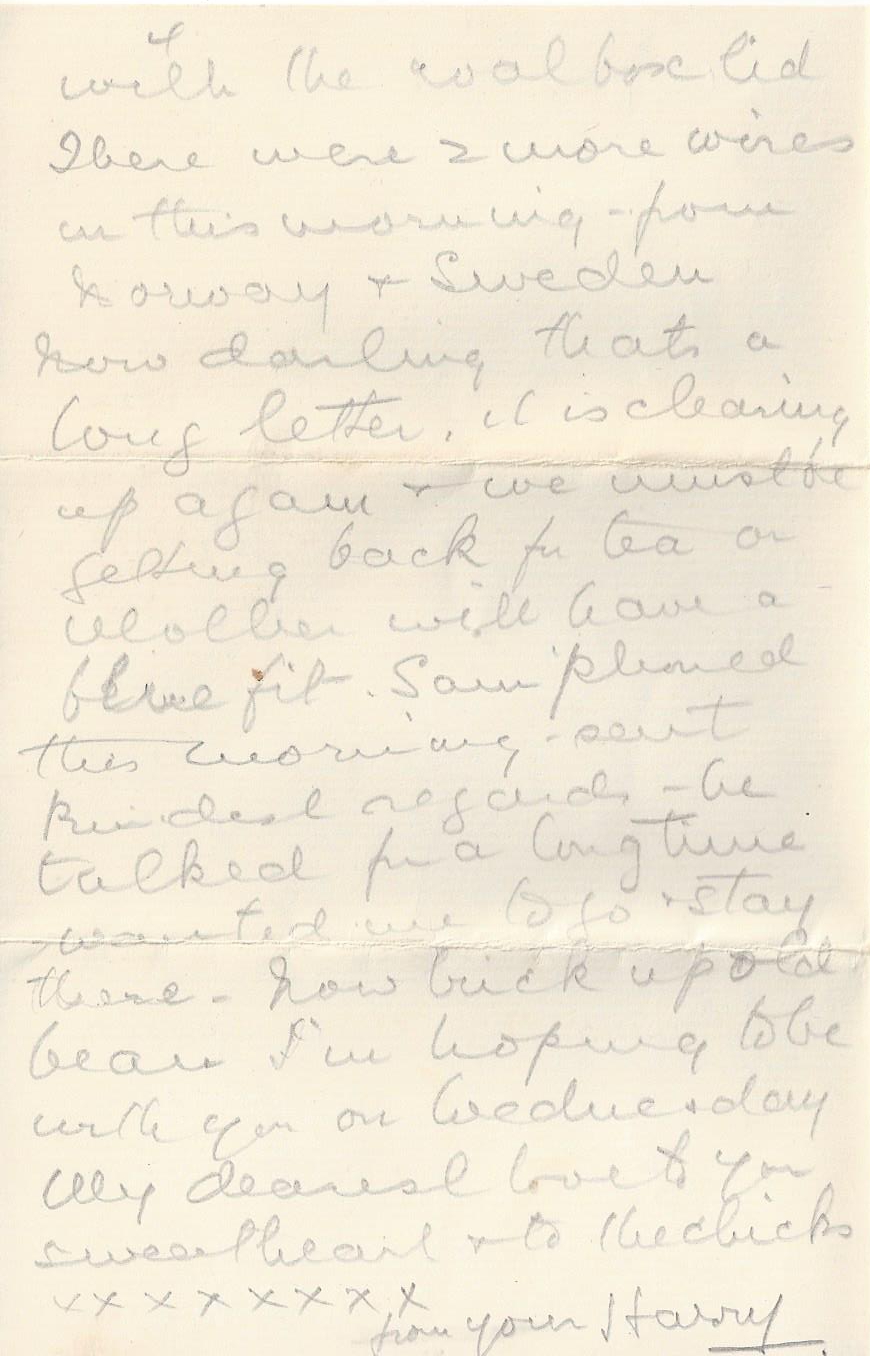 4
with the coal box lid
There were 2 more wires
in this morning - from
Norway + Sweden
Now darling thats a
long letter, it is clearing
up again + we must be
getting back for tea or
Mother will have a
blue fit. Sam 'phoned
this morning - sent
kindest regards - he
talked for a long time
wanted me to go + stay
there - Now buck up old
bean I'm hoping to be
with you on Wednesday
My dearest love to you
sweetheart + to the chicks
x x x x x x x x
from your Harry